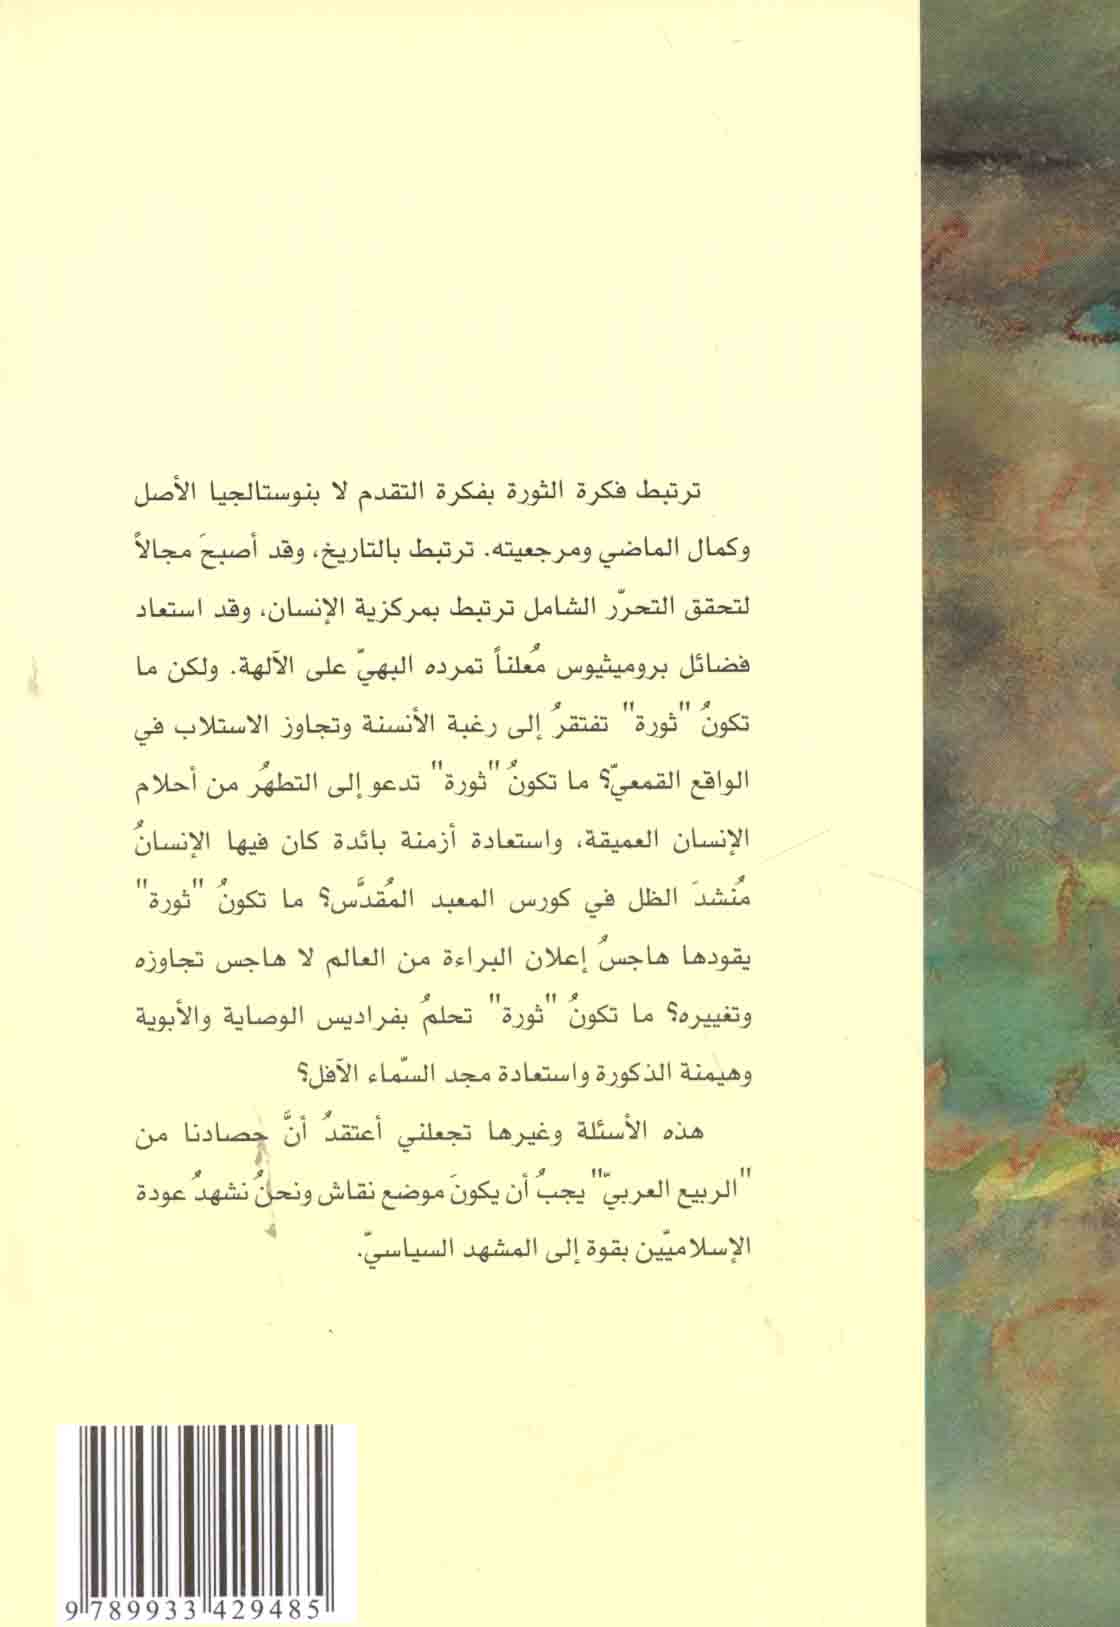 ترتبط فكرة الثورة بفكرة التقدم لا بنوستالجيا الأصل
وكمال الماضي ومرجعيته. ترتبط بالتاريخ، وقد أصبحَ مجالاً
لتحقق التحرّر الشامل ترتبط بمركزية الإنسان، وقد استعاد
فضائل بروميثيوس مُعلناً تمرده البهيّ على الآلهة. ولكن ما
تكونُ "ثورة" تفتقرُ إلى رغبة الأنسنة وتجاوز الاستلاب في
الواقع القمعيّ؟ ما تكونُ "ثورة" تدعو إلى التطهُر من أحلام
الإنسان العميقة، واستعادة أزمنة بائدة كان فيها الإنسانُ
مُنشدَ الظل في كورس المعبد المُقدَّس؟ ما تكونُ "ثورة"
يقودها هاجسُ إعلان البراءة من العالم لا هاجس تجاوزه
وتغييره؟ ما تكونُ "ثورة" تحلمُ بفراديس الوصاية والأبوية
وهيمنة الذكورة واستعادة مجد السّماء الآفل؟
هذه الأسئلة وغيرها تجعلني أعتقدُ أنَّ حصادنا من
"الربيع العربيّ" يجبُ أن يكونَ موضع نقاش ونحنُ نشهدُ عودة
الإسلاميّين بقوة إلى المشهد السياسيّ.
9 789933 429485